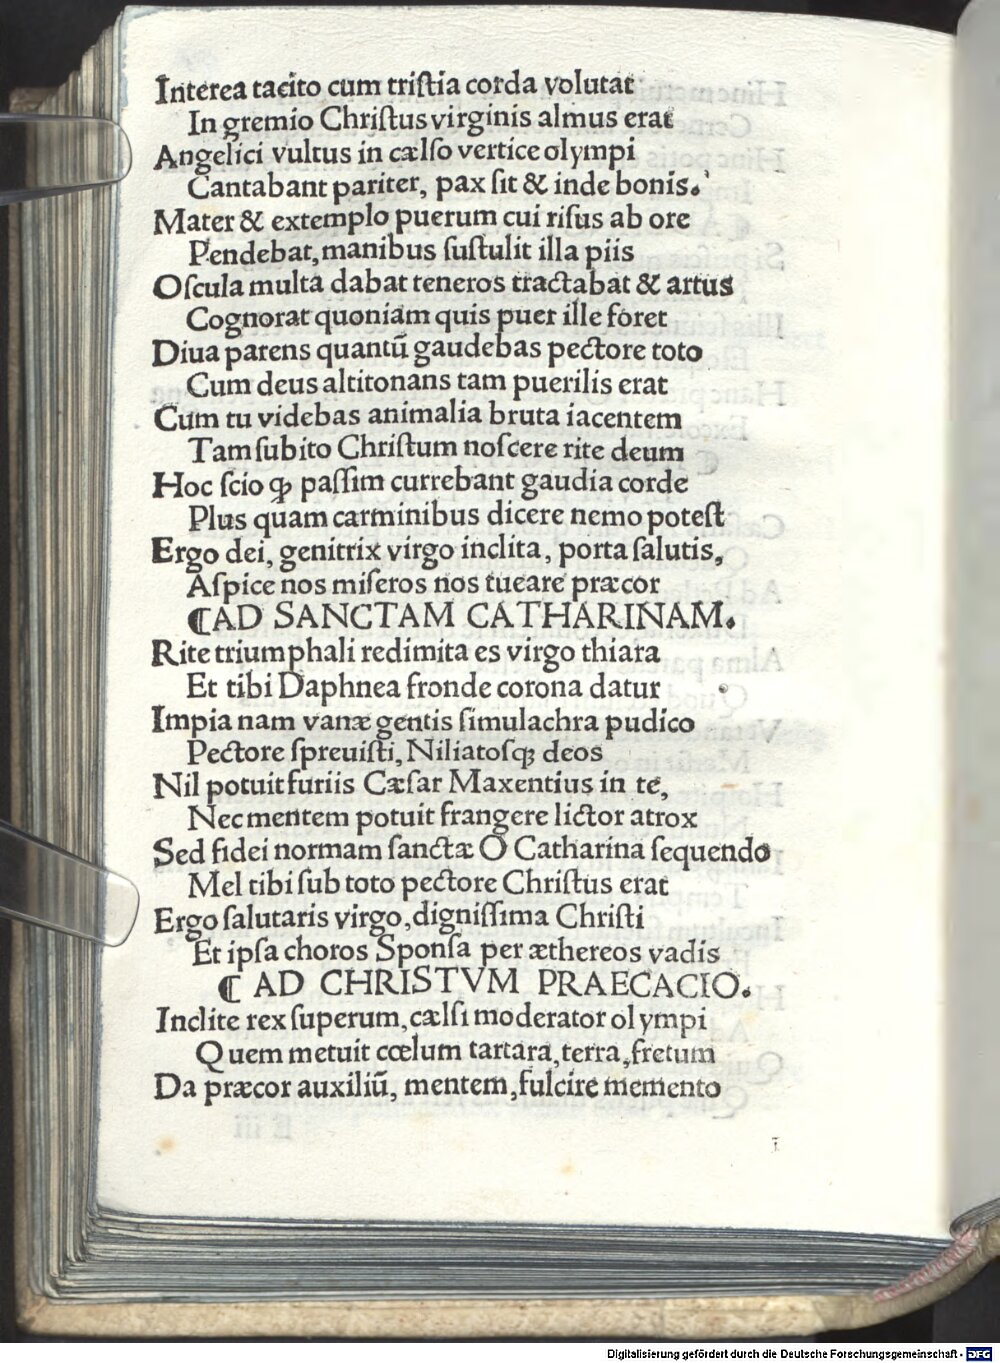 Interea tacito cum triſtia corda volutat
In gremio Chriſtus virginis almus erat
Angelici vultus in cælſo vertice olympi
Cantabant pariter, pax ſit & inde bonis.
Mater & extemplo puerum cui riſus ab ore
Pendebat, manibus ſuſtulit illa piis
Oſcula multa dabat teneros tractabat & artus
Cognorat quoniam quis puer ille foret
Diua parens quantũ gaudebas pectore toto
Cum deus altitonans tam puerilis erat
Cum tu videbas animalia bruta iacentem
Tam ſubito Chriſtum noſcere rite deum
Hoc ſcio ꝙ paſſim currebant gaudia corde
Plus quam carminibus dicere nemo poteſt
Ergo dei, genitrix virgo inclita, porta ſalutis,
Aſpice nos miſeros nos tueare præcor
¶AD SANCTAM CATHARINAM.
Rite triumphali redimita es virgo thiara
Et tibi Daphnea fronde corona datur
Impia nam vanæ gentis ſimulachra pudico
Pectore ſpreuiſti, Niliatoſqꝫ deos
Nil potuit furiis Cæſar Maxentius in te,
Nec mentem potuit frangere lictor atrox
Sed fidei normam ſanctæ O Catharina ſequendo
Mel tibi ſub toto pectore Chriſtus erat
Ergo ſalutaris virgo, digniſſima Chriſti
Et ipſa choros Sponſa per æthereos vadis
¶ AD CHRISTVM PRAECACIO.
Inclite rex ſuperum, cælſi moderator olympi
Quem metuit cœlum tartara, terra, fretum
Da præcor auxiliũ, mentem, fulcire memento
Digitalisierung gefördert durch die Deutsche Forschungsgemeinschaft - DFG